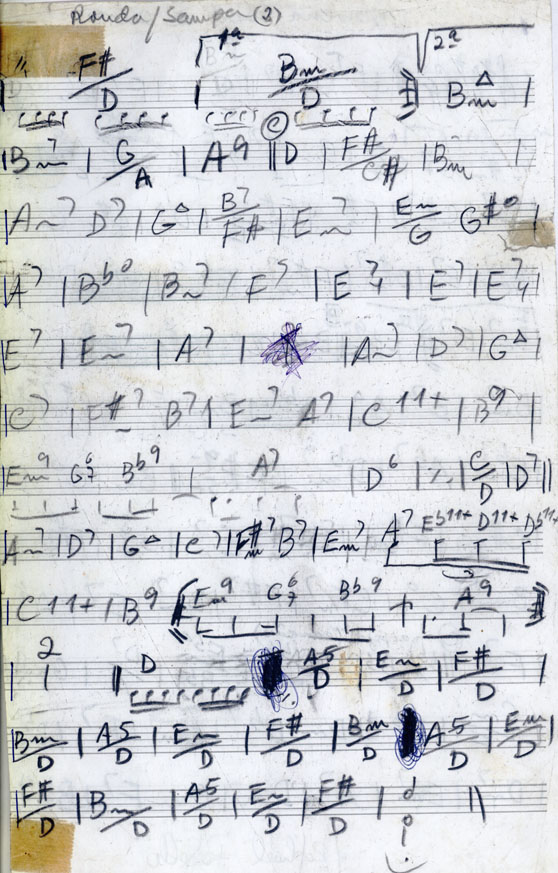 Ronda/Sampa (2)
1ª 2ª
F#/D | Bm/D | BmΔ |
©
| Bm7 | G/A | A9 || D | F#/C# | Bm |
| Am7 D7 | GΔ | B7/F# | Em7 | Em/G G#º |
| A7 | Bbº | Bm7 / F7 | E74 | E7 | E74
E7 | Em7 | A7 | | Am7 | D7 | GΔ |
| C7 | F#m7 B7 | Em7 A7 | C11+ | B9 |
| Em9 G67 Bb9 | A7 | D6 | ٪ | C/D | D7 ||
| Am7 | D7 | GΔ | C7 | F#m7 B7 | Em7 | A7 Eb11+ D11+ Db11+
| C11+ | B9 Em9 G67 Bb9 A9
2 || D A5/D | Em/D | F#/D |
Bm/D | A5/D | Em/D | F#/D | Bm/D A5/D | Em/D |
F#/D | Bm/D | A5/D | Em/D | F#/D | ||